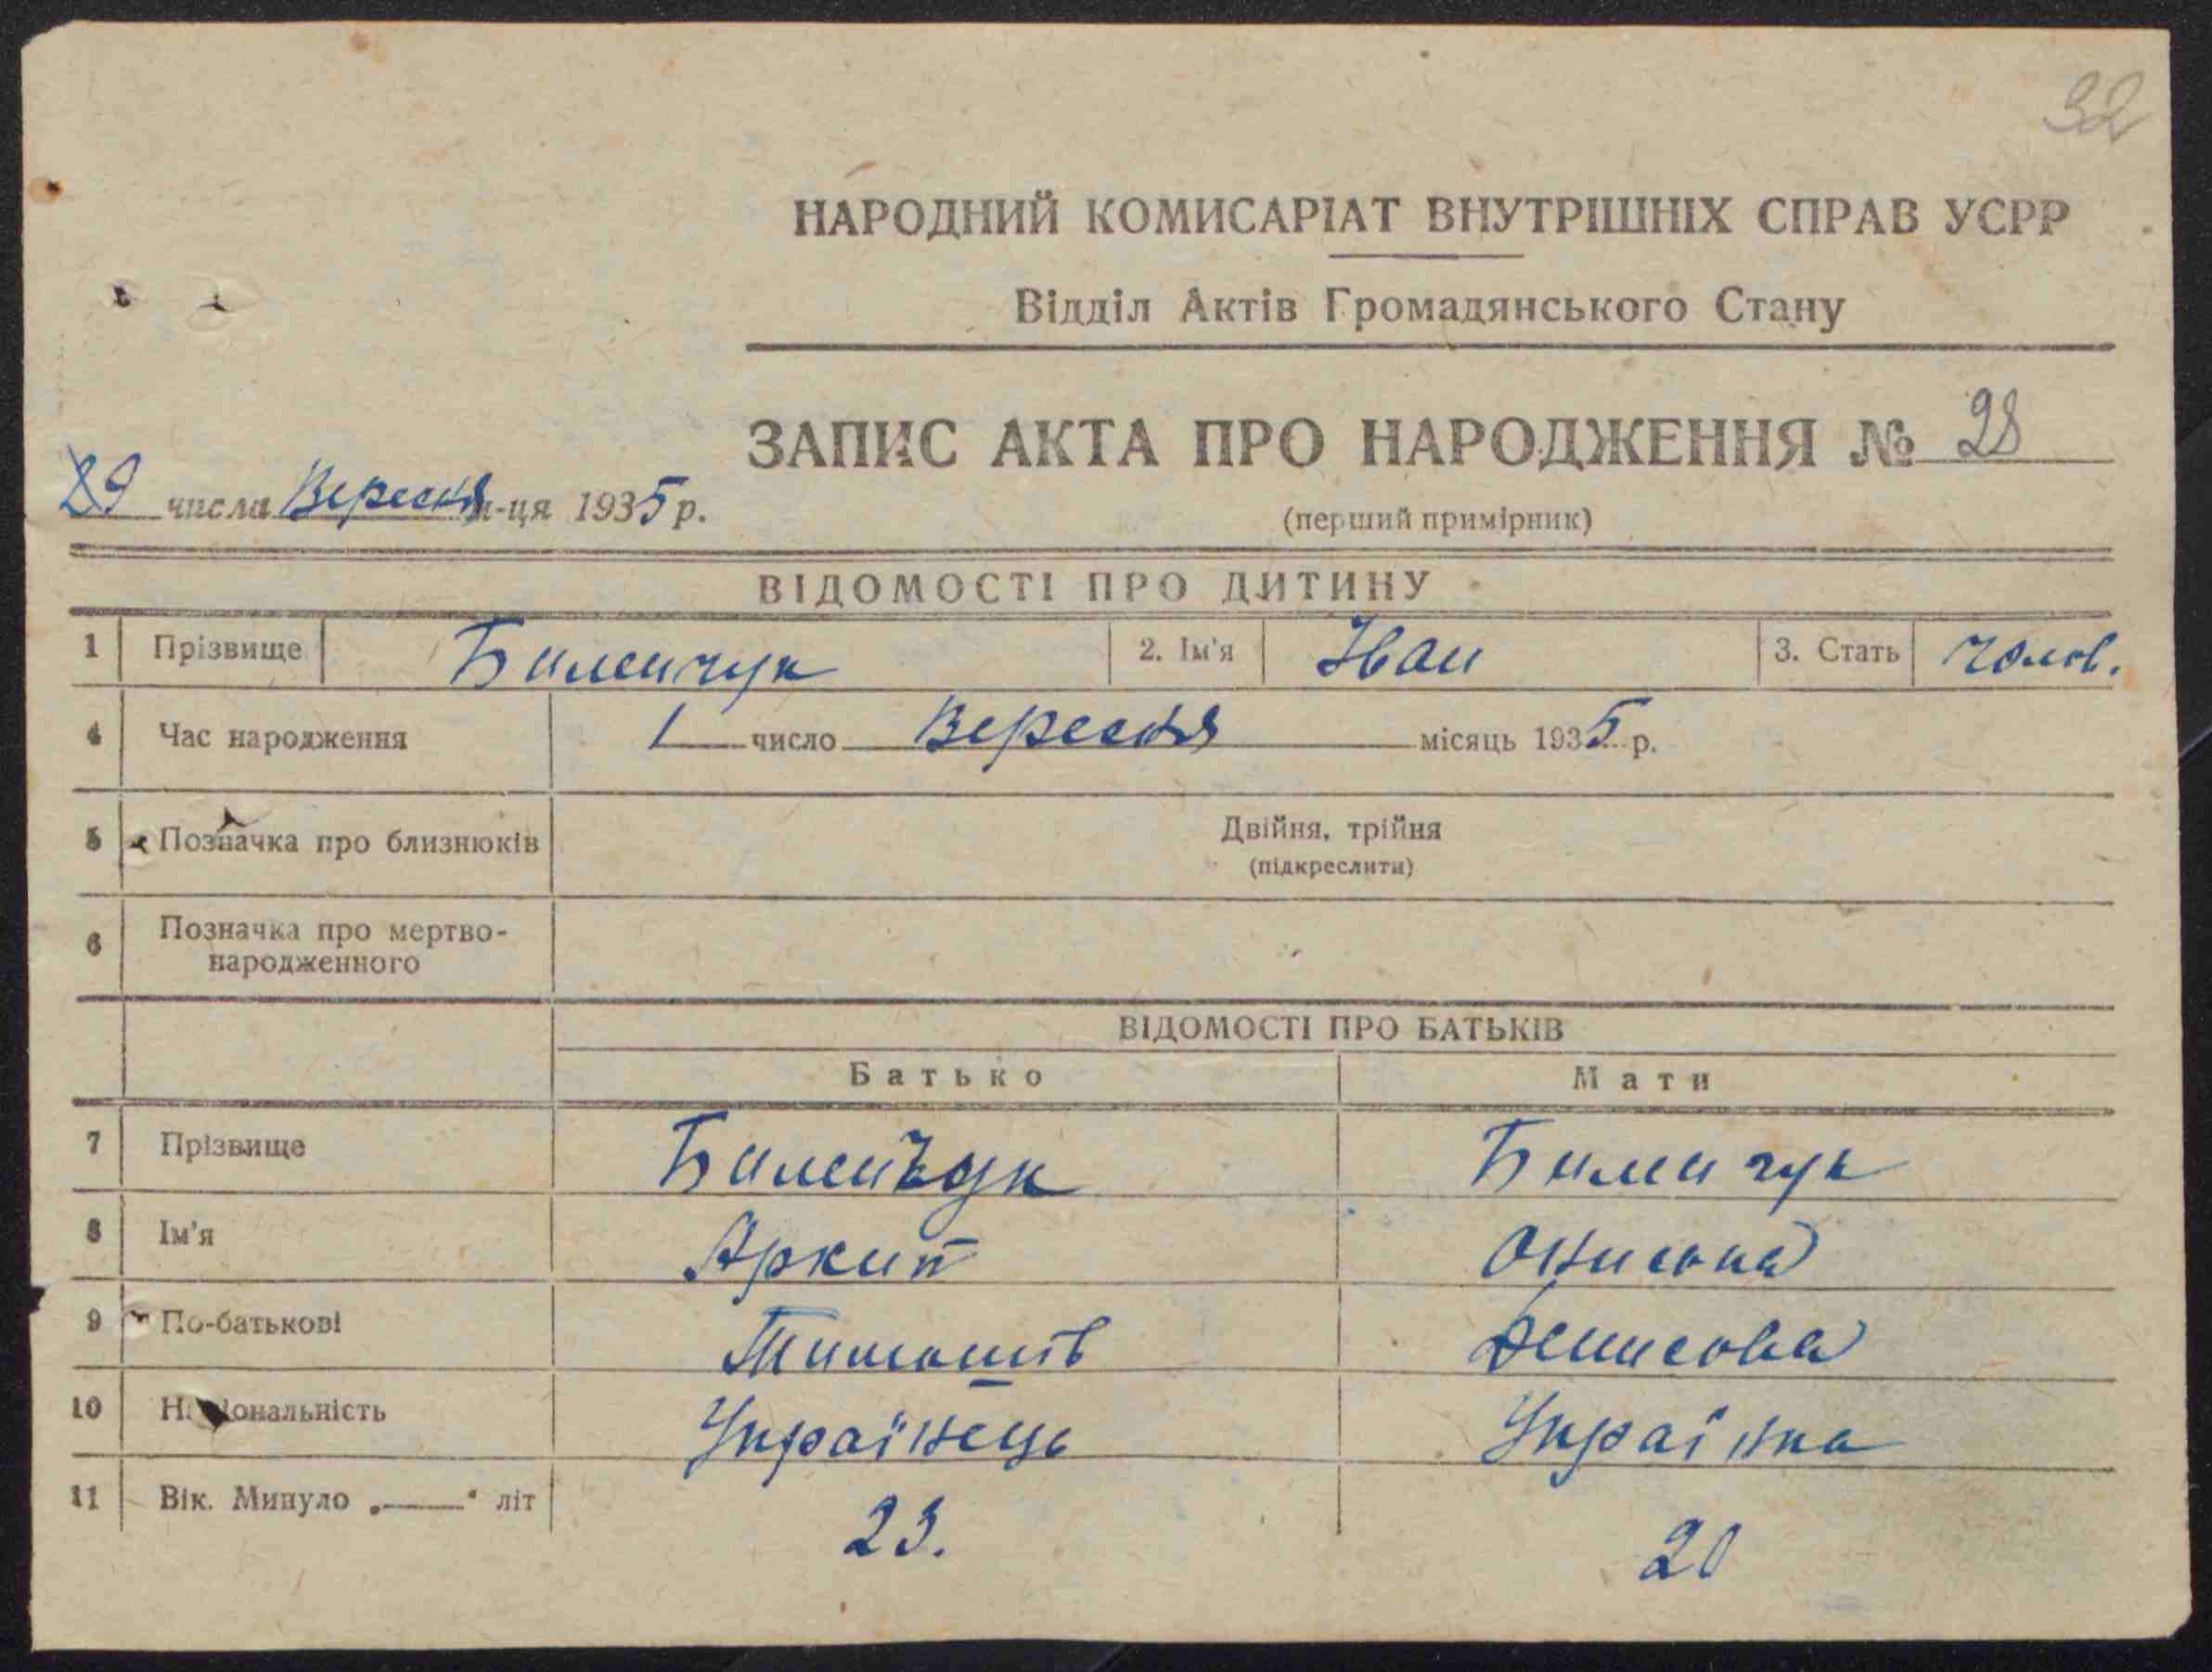 32
НАРОДНИЙ КОМИСАРІАТ ВНУТРІШНІХ СПРАВ УСРР
Відділ Актів Громадянського Стану
ЗАПИС АКТА ПРО НАРОДЖЕННЯ № 28
числа Вересня м-ця 1935 р.
(перший примірник)
ВІДОМОСТІ ПРО ДИТИНУ
1 Прізвище Биленчук 2. Ім'я Іван 3. Стать чолов.
4 Час народження 1 число Вересня місяць 1935 р.
5 Позначка про близнюків Двійня, трійня
(підкреслити)
6 Позначка про мертво-
народженного
ВІДОМОСТІ ПРО БАТЬКІВ
Батько Мати
7 Прізвище Биленчук Биленчук
8 Ім'я Аркип Ониська
9 По-батькові Тимошів Денисова
10 Національність Українець Українка
11 Вік. Минуло „ “ літ 23. 20